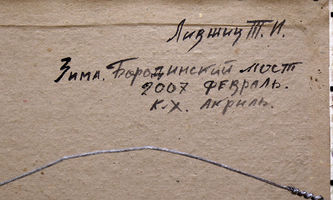 Лившиц Т. И.
Зима. Бородинский мост
2007 ФЕВРАЛЬ.
К.Х. Акриль.